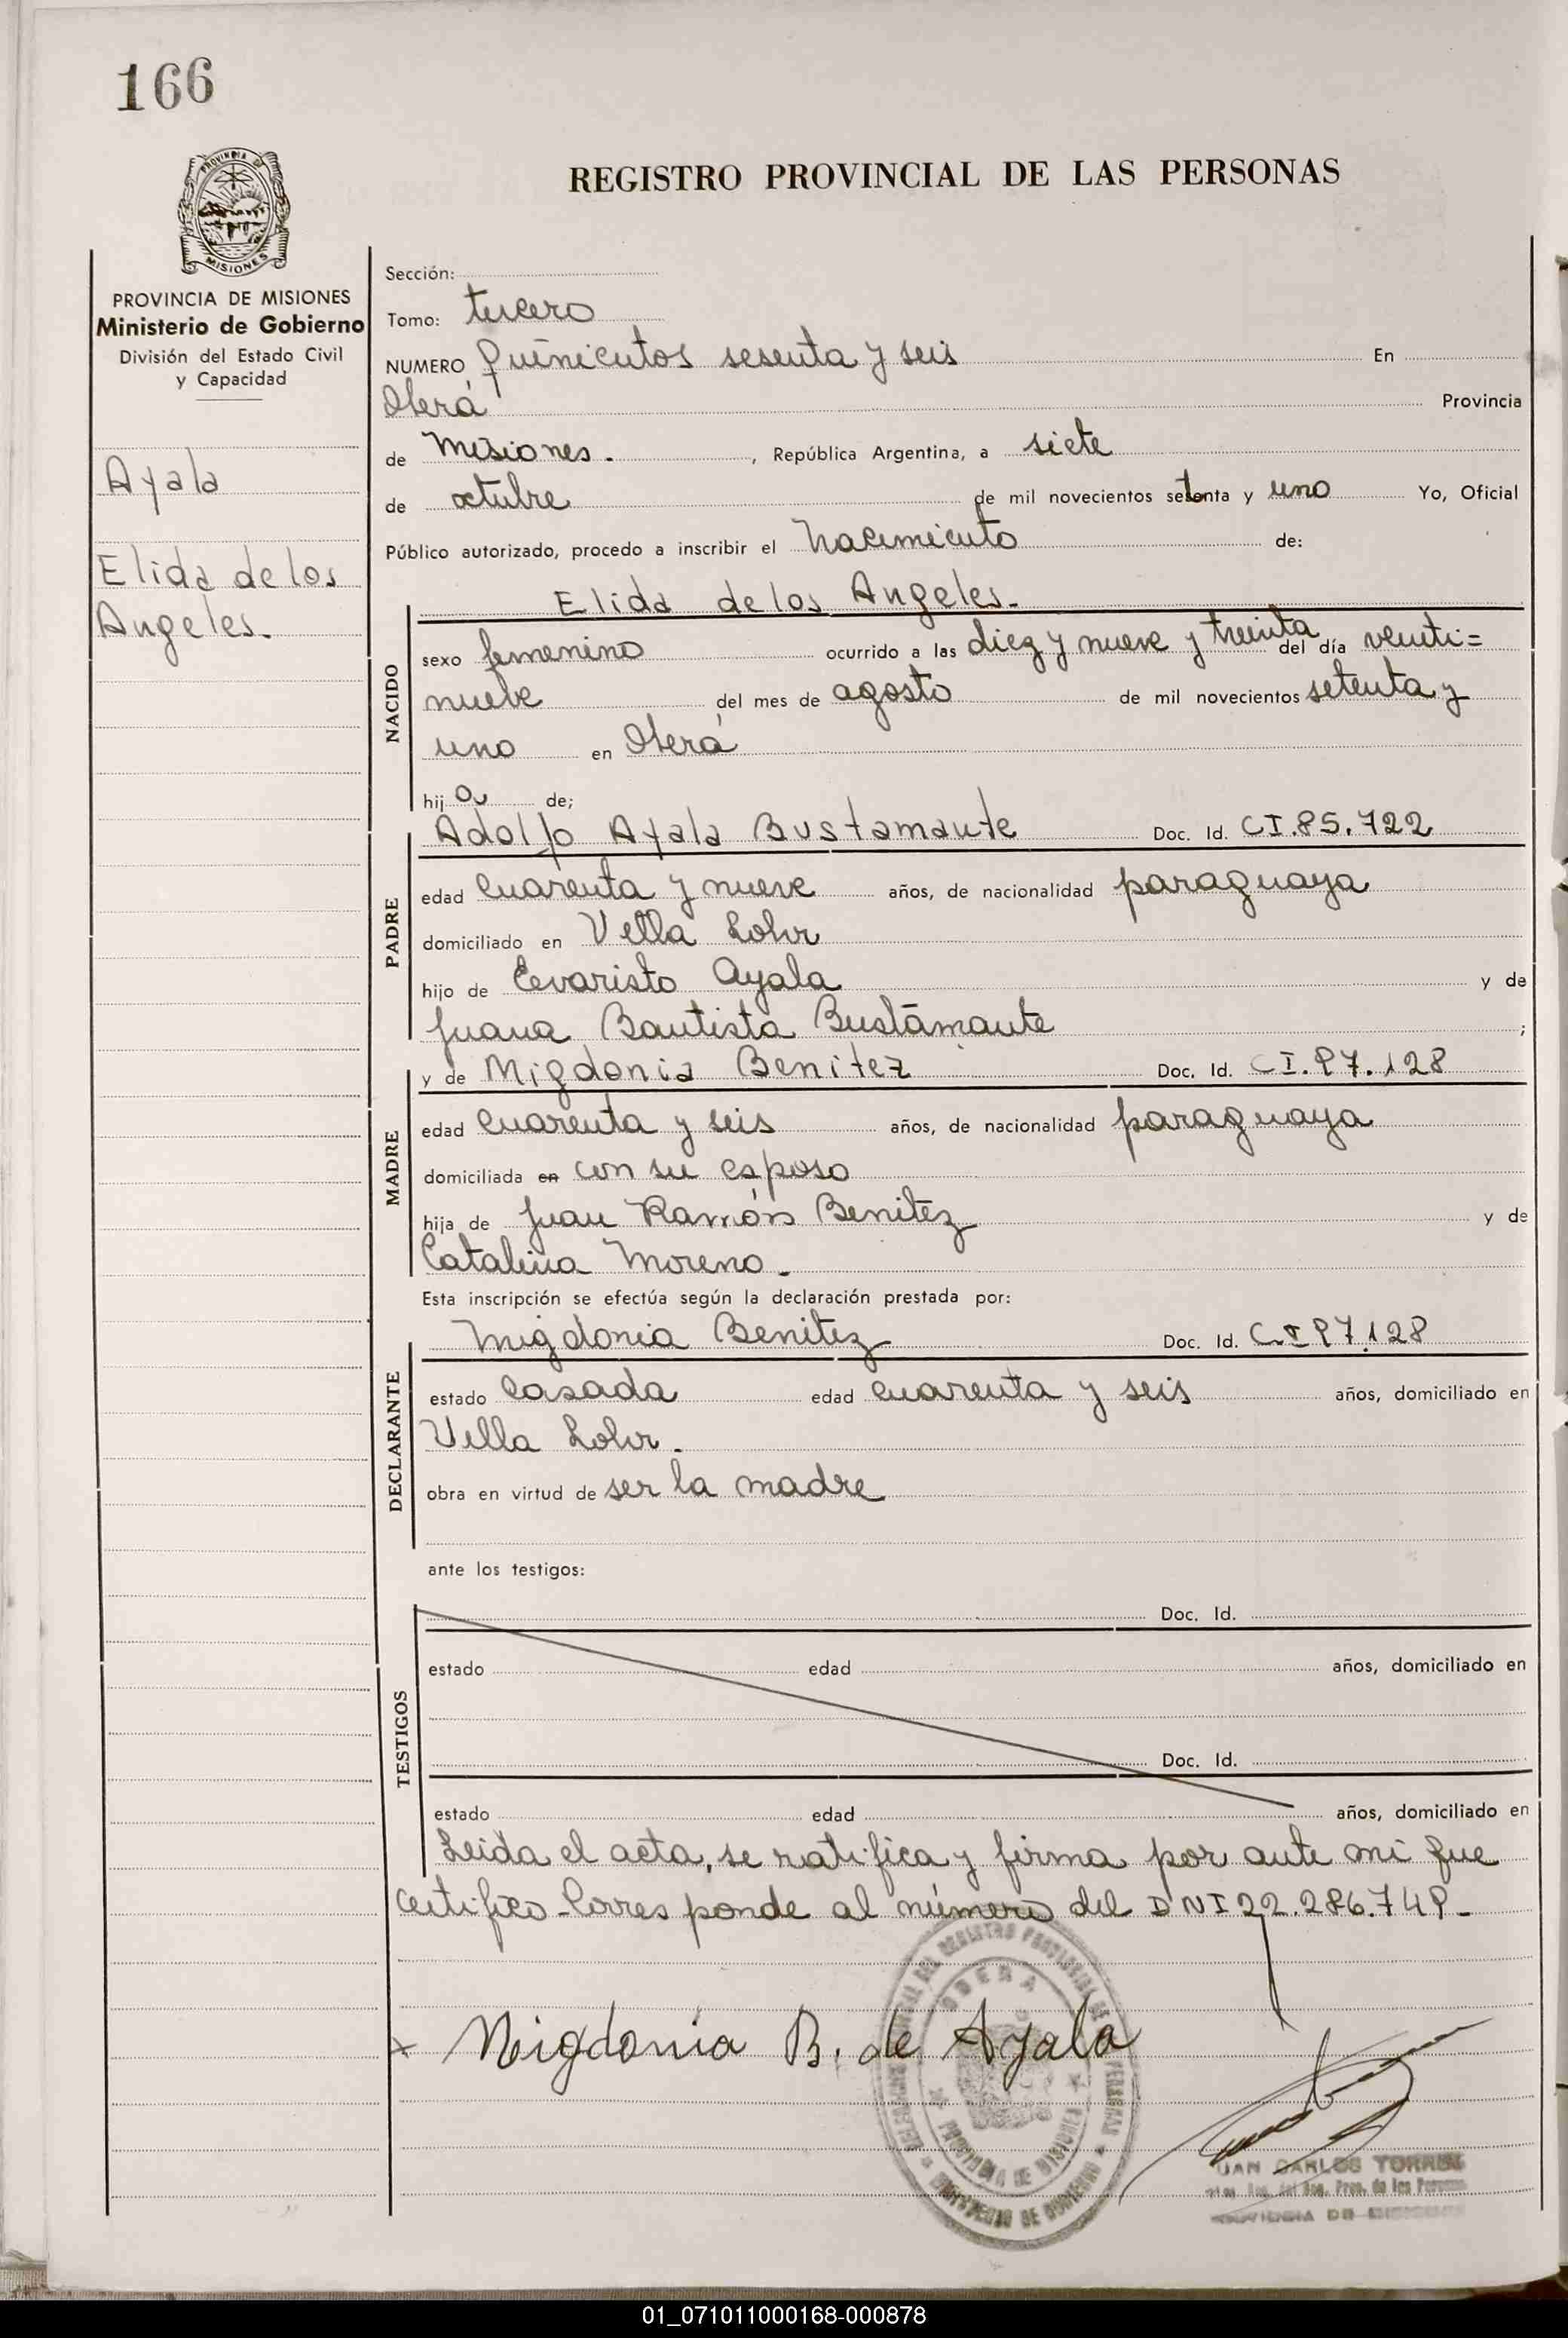 166
PROVINCIA DE
MISIONES
REGISTRO PROVINCIAL DE LAS PERSONAS
PROVINCIA DE MISIONES
Ministerio de Gobierno
División del Estado Civil
y Capacidad
Ayala
Elida de los
Angeles.
Sección:
Tomo: tercero
NUMERO Quinientos sesenta y seis En
Oberá Provincia
de Misiones. , República Argentina, a siete
de octubre de mil novecientos setenta y uno Yo, Oficial
Público autorizado, procedo a inscribir el nacimiento de:
Elida de los Angeles.-
NACIDO
sexo femenino ocurrido a las diez y nueve y treinta del día veinti=
nueve del mes de agosto de mil novecientos setenta y
uno en Oberá
hij a de;
PADRE
Adolfo Ayala Bustamante Doc. Id. CI.85.722
edad cuarenta y nueve años, de nacionalidad paraguaya
domiciliado en Villa Lohr
hijo de Evaristo Ayala y de
Juana Bautista Bustamante ;
MADRE
y de Migdonia Benitez Doc. Id. CI.97.128
edad cuarenta y seis años, de nacionalidad paraguaya
domiciliada en con su esposo
hija de Juan Ramón Benitez y de
Catalina Moreno.-
Esta inscripción se efectúa según la declaración prestada por:
DECLARANTE
Migdonia Benitez Doc. Id. C.I 97.128
estado casada edad cuarenta y seis años, domiciliado en
Villa Lohr.
obra en virtud de ser la madre
ante los testigos:
TESTIGOS
Doc. Id.
estado edad años, domiciliado en
Doc. Id.
estado edad años, domiciliado en
Leida el acta, se ratifica y firma por ante mi que
certifico-Corresponde al número del DNI 22.286.749-
x Migdonia B. de Ayala
DEL REGISTRO PROVINCIAL DE LAS PERSONAS
OBERA
PROVINCIA DE MISIONES
MINISTERIO DE GOBIERNO
JUAN CARLOS TORRES
Reg. Prov. de las Personas
PROVINCIA DE MISIONES
01_071011000168-000878